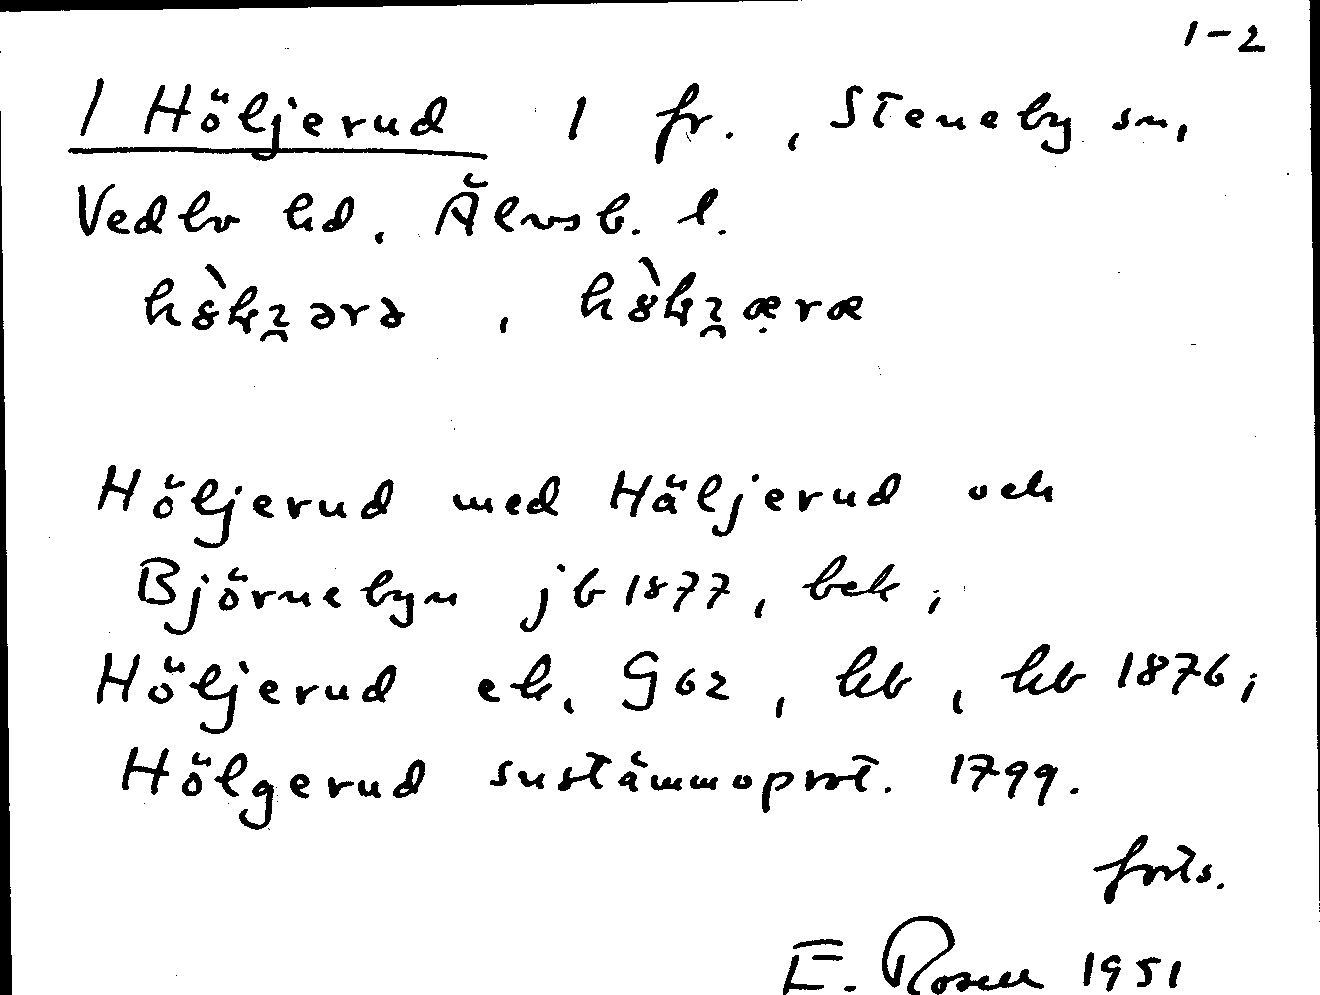 1-2
1 Höljerud 1 fr., Steneby sn,
Vedbo hd. Älvsb. l.
Höljerud med Häljerud och
Björnebyn jb 1877, bek;
Höljerud ek. G62, hb, hb 1876;
Hölgerud sustämmoprot. 1799.
forts.
E. Rosell 1951